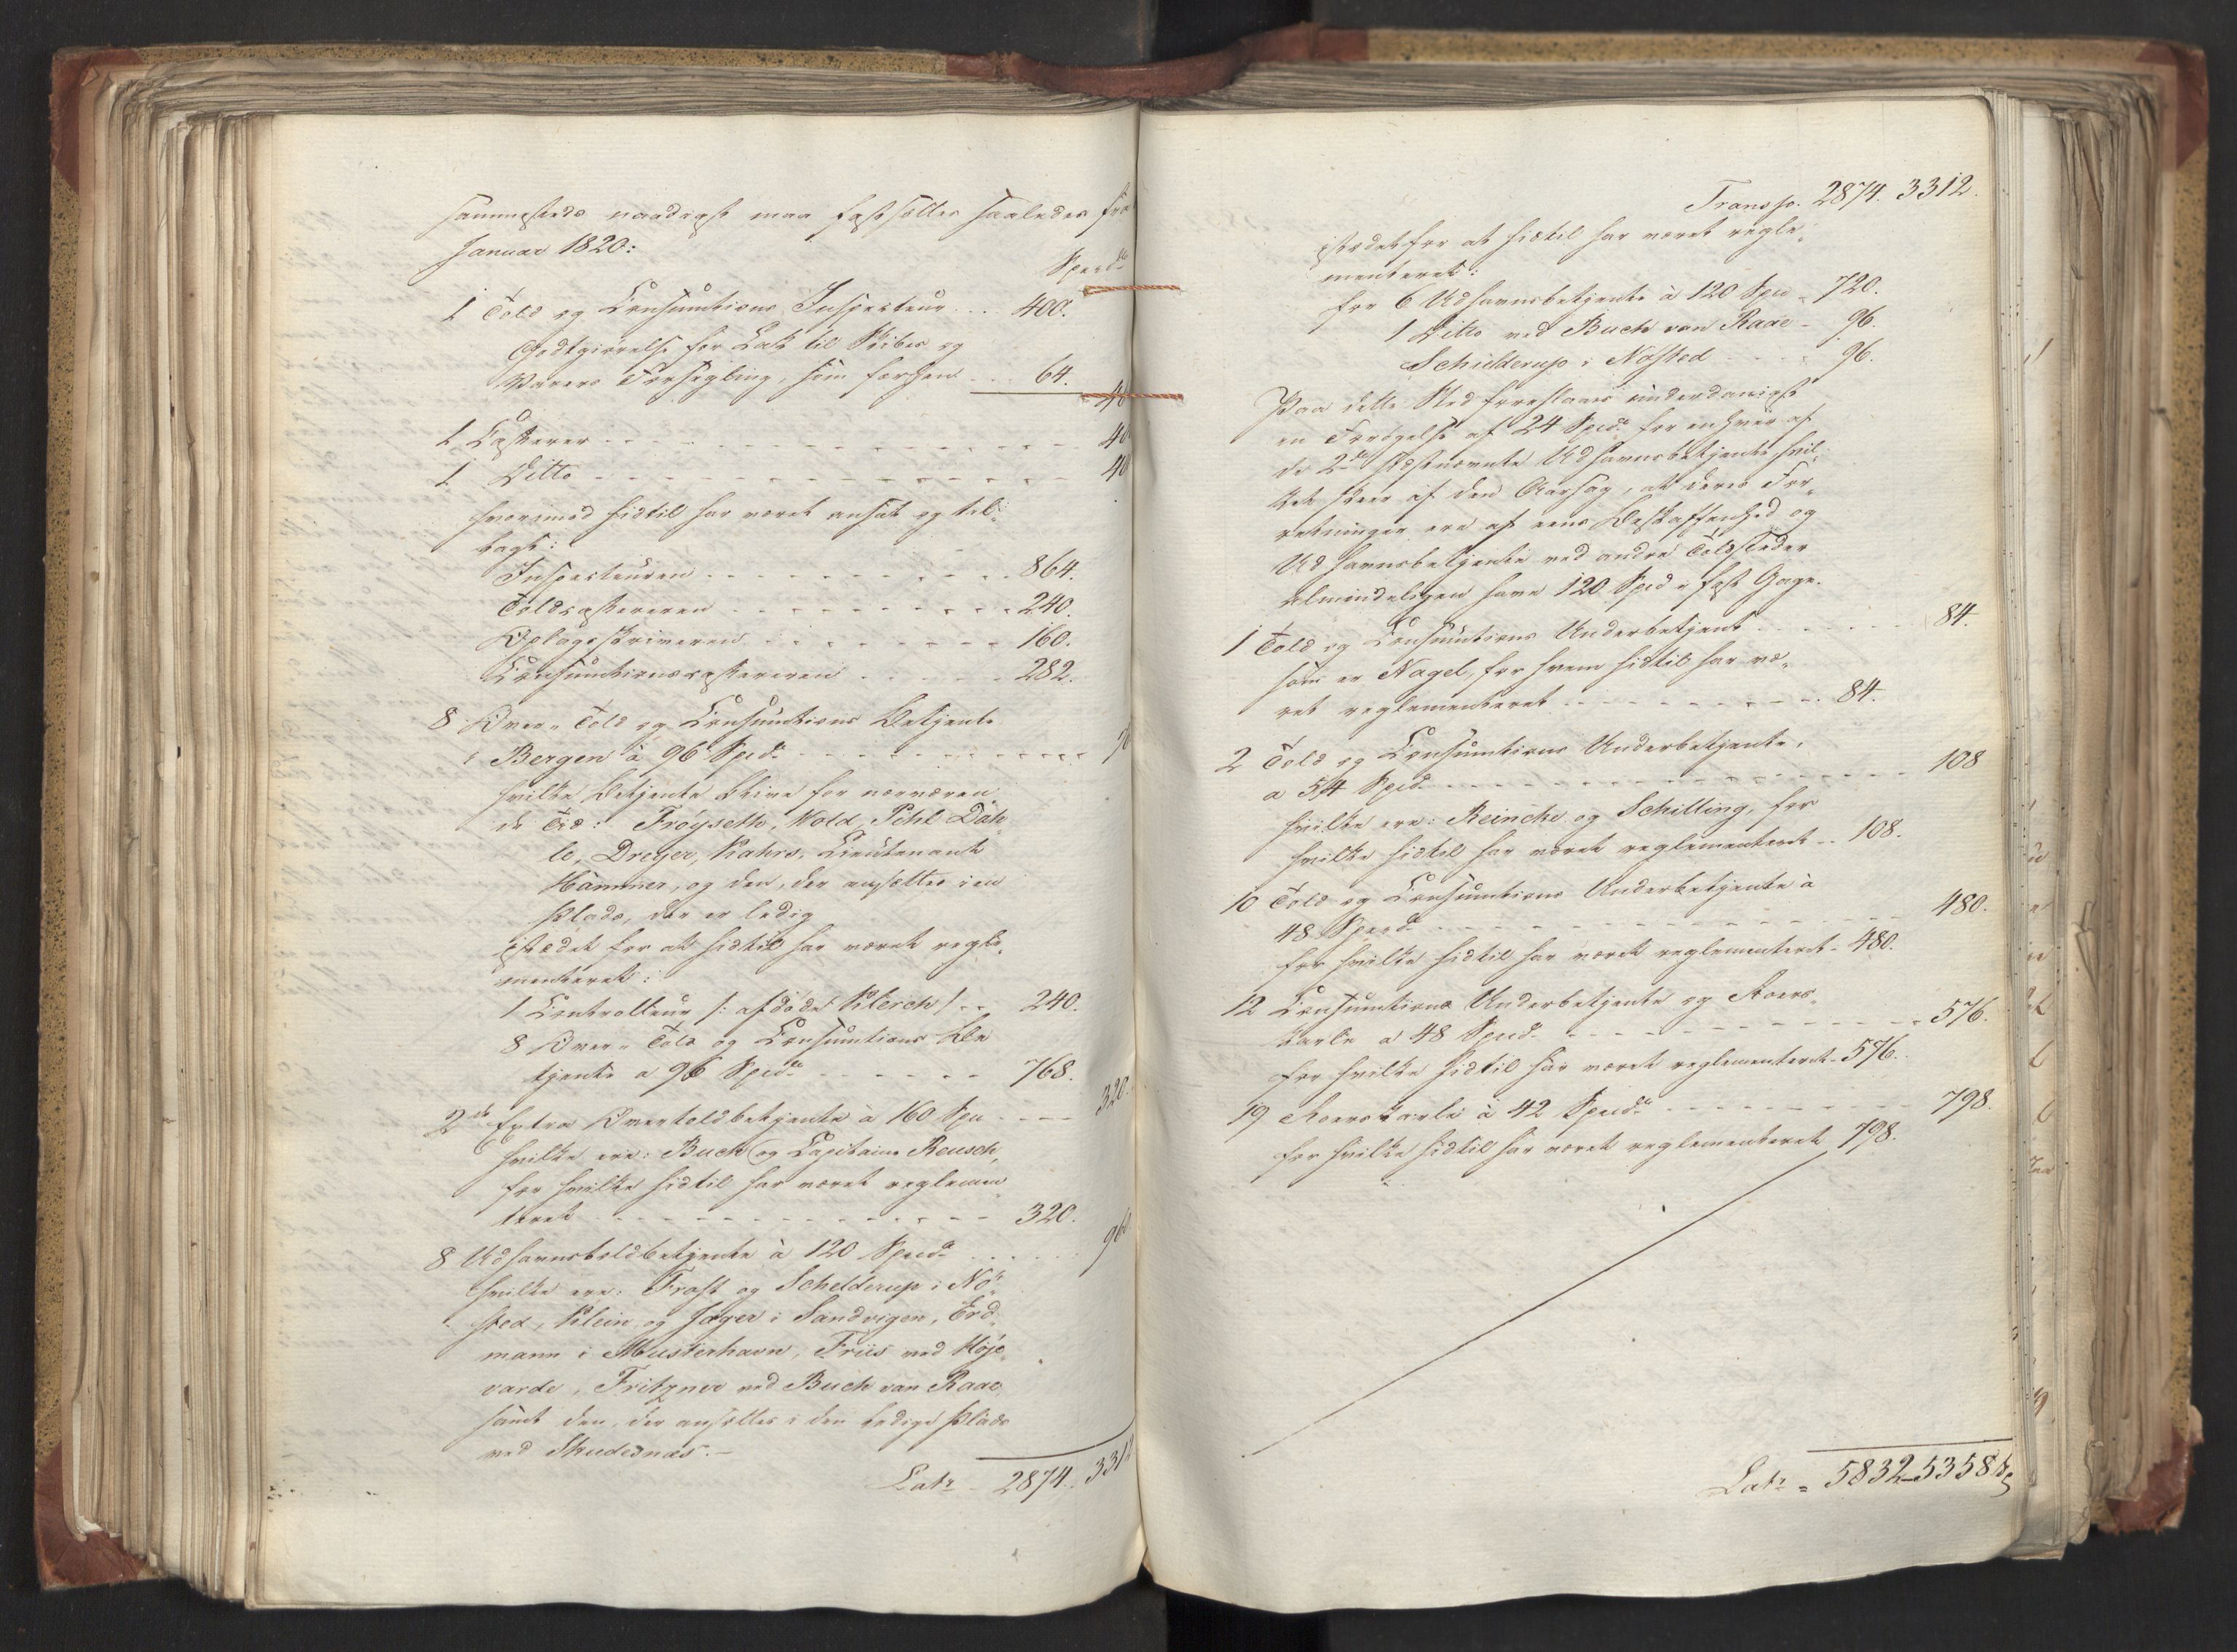 sammesteds naadigst maa fastsættes saaledes fra
Januar 1820:
Specd
1 Told og Consumtions Inspecteur ... 400.
Godtgjørelse for Lak til Skibes og
Varers Forsegling, som forhen ... 64.
1 Casserer
1 Ditto
hvorimod hidtil har været ansat og til-
lagt:
Inspecteuren 864.
Toldcassereren 240.
Oplagsskriveren 160.
Consumtionscassereren 282.
8 Over-Told og Consumtions Betjente
i Bergen à 96 Spd.
hvilke Betjente blive for nærværen
de Tid: Frøyseth, Wold, Pihl Dah
le, Dreyer, Kahrs, Lieutenant
Hammer, og den, der ansættes i en
Plads, der er ledig
istædet for at hidtil har været regle-
menteret:
1 Controlleur /: afdøde Klerck / .. 240.
8 Over-Told og Consumtions Be
tjente a 96 Spd. 768.
2de Extra Overtoldbetjente à 160 Spd 320.
hvilke ere: Buch og Capitaine Reusch,
for hvilke hidtil har været reglemen
teret 320.
8 Udhavnstoldbetjente à 120 Specd. 960
hvilke ere: Frost og Schelderup i Nø-
sted, Klein og Jæger i Sandvigen, Erd-
mann i Musterhavn, Friis ved Høje-
varde, Fritzner ved Buch van Raae,
samt den, der ansættes i den ledige Plads
ved Skudesnæs.-
Lats. 2874. 3312
Transp. 2874. 3312.
istædetfor at hidtil har været regle-
menteret:
for 6 Udhavnsbetjente à 120 Spd = 720.
1 Ditto ved Buch van Raae - 96.
Schielderup i Nøsted 96.
Paa dette Sted foreslaaes underdanigst
en Forøgelse af 24 Spd. for enhver af
de 2de sidstnævnte Udhavnsbetjente, hvil-
ket skeer af den Aarsag, at deres For-
retninger ere af eens Beskaffenhed og
Udhavnsbetjente ved andre Toldsteder
almindeligen have 120 Spd i fast Gage.
1 Told og Consumtions Underbetjent 84.
som er Nagel, for hvem hidtil har væ-
ret reglementeret 84.
2 Told og Consumtions Underbetjente,
a 54 Spd. 108
hvilke ere: Reincke og Schilling, for
hvilke hidtil har været reglementeret .. 108.
10 Told og Consumtions Underbetjente à
48 Specd 480.
for hvilke hidtil har været reglementeret - 480.
12 Consumtions Underbetjente og Roers-
karle a 48 Specd. 576.
for hvilke hidtil har været reglementeret - 576.
19 Roerskarle à 42 Specd. 798.
for hvilke hidtil har været reglementeret 798.
Lats. = 5832 - 5358